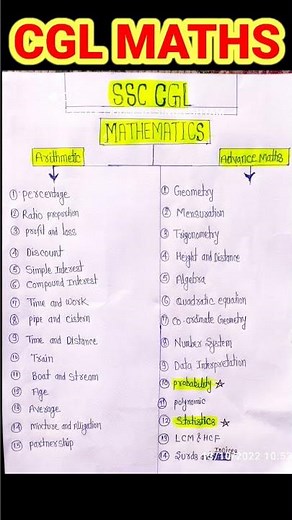 CGL MATHS
SSC CGL
MATHEMATICS
Arithmetic
① Percentage
② Ratio proportion
③ profit and loss
④ Discount
⑤ Simple Interest
⑥ Compound Interest
⑦ Time and Work
⑧ pipe and cistern
⑨ Time and Distance
⑩ Train
⑪ Boat and Stream
⑫ Age
⑬ Average
⑭ mixture and Alligation
⑮ partnership
Advance Maths
① Geometry
② Mensuration
③ Trigonometry
④ Height and Distance
⑤ Algebra
⑥ Quadratic equation
⑦ Co-ordinate Geometry
⑧ Number System
⑨ Data Interpretation
⑩ probability ☆
⑪ polynomic
⑫ Statistics ☆
⑬ LCM & HCF
⑭ Surds
2022 10:32